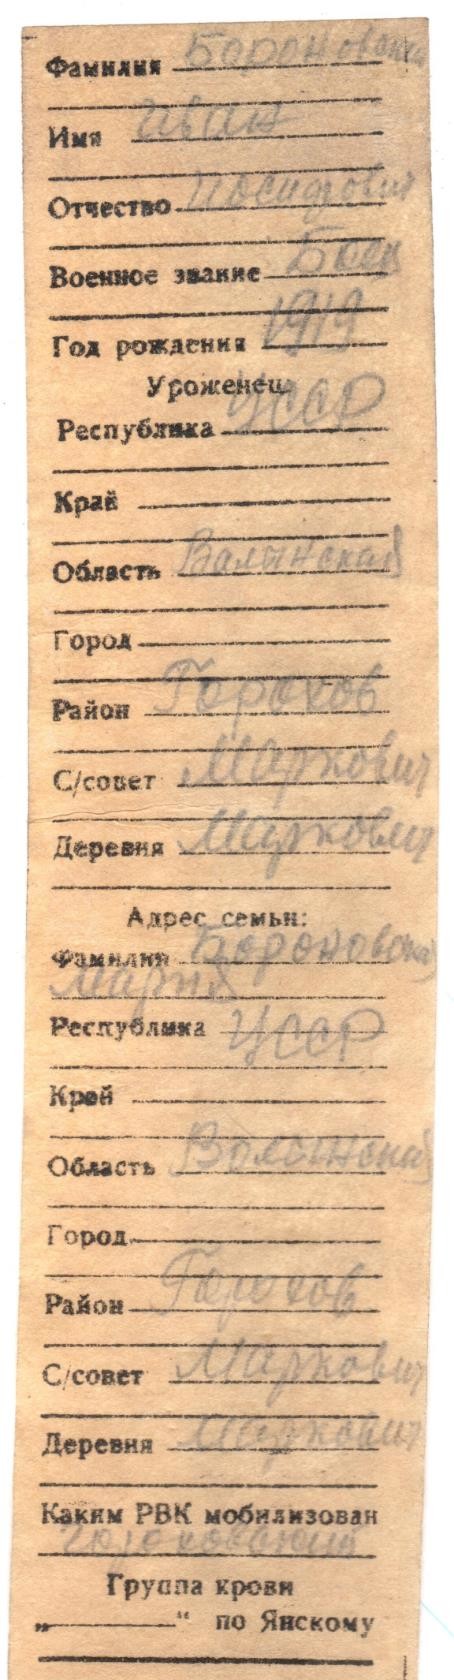 Фамилия Бороновский
Имя Иван
Отчество Иосифович
Военное звание Боец
Год рождения 1919
Уроженец
Республика УССР
Край
Область Валынская
Город
Район Горохов
С/совет Маркович
Деревня Маркович
Адрес семьи:
Фамилия Бороновская
Мария
Республика УССР
Край
Область Волынская
Город
Район Горохов
С/совет Маркович
Деревня Маркович
Каким РВК мобилизован
Гороховский
Группа крови
„ “ по Янскому